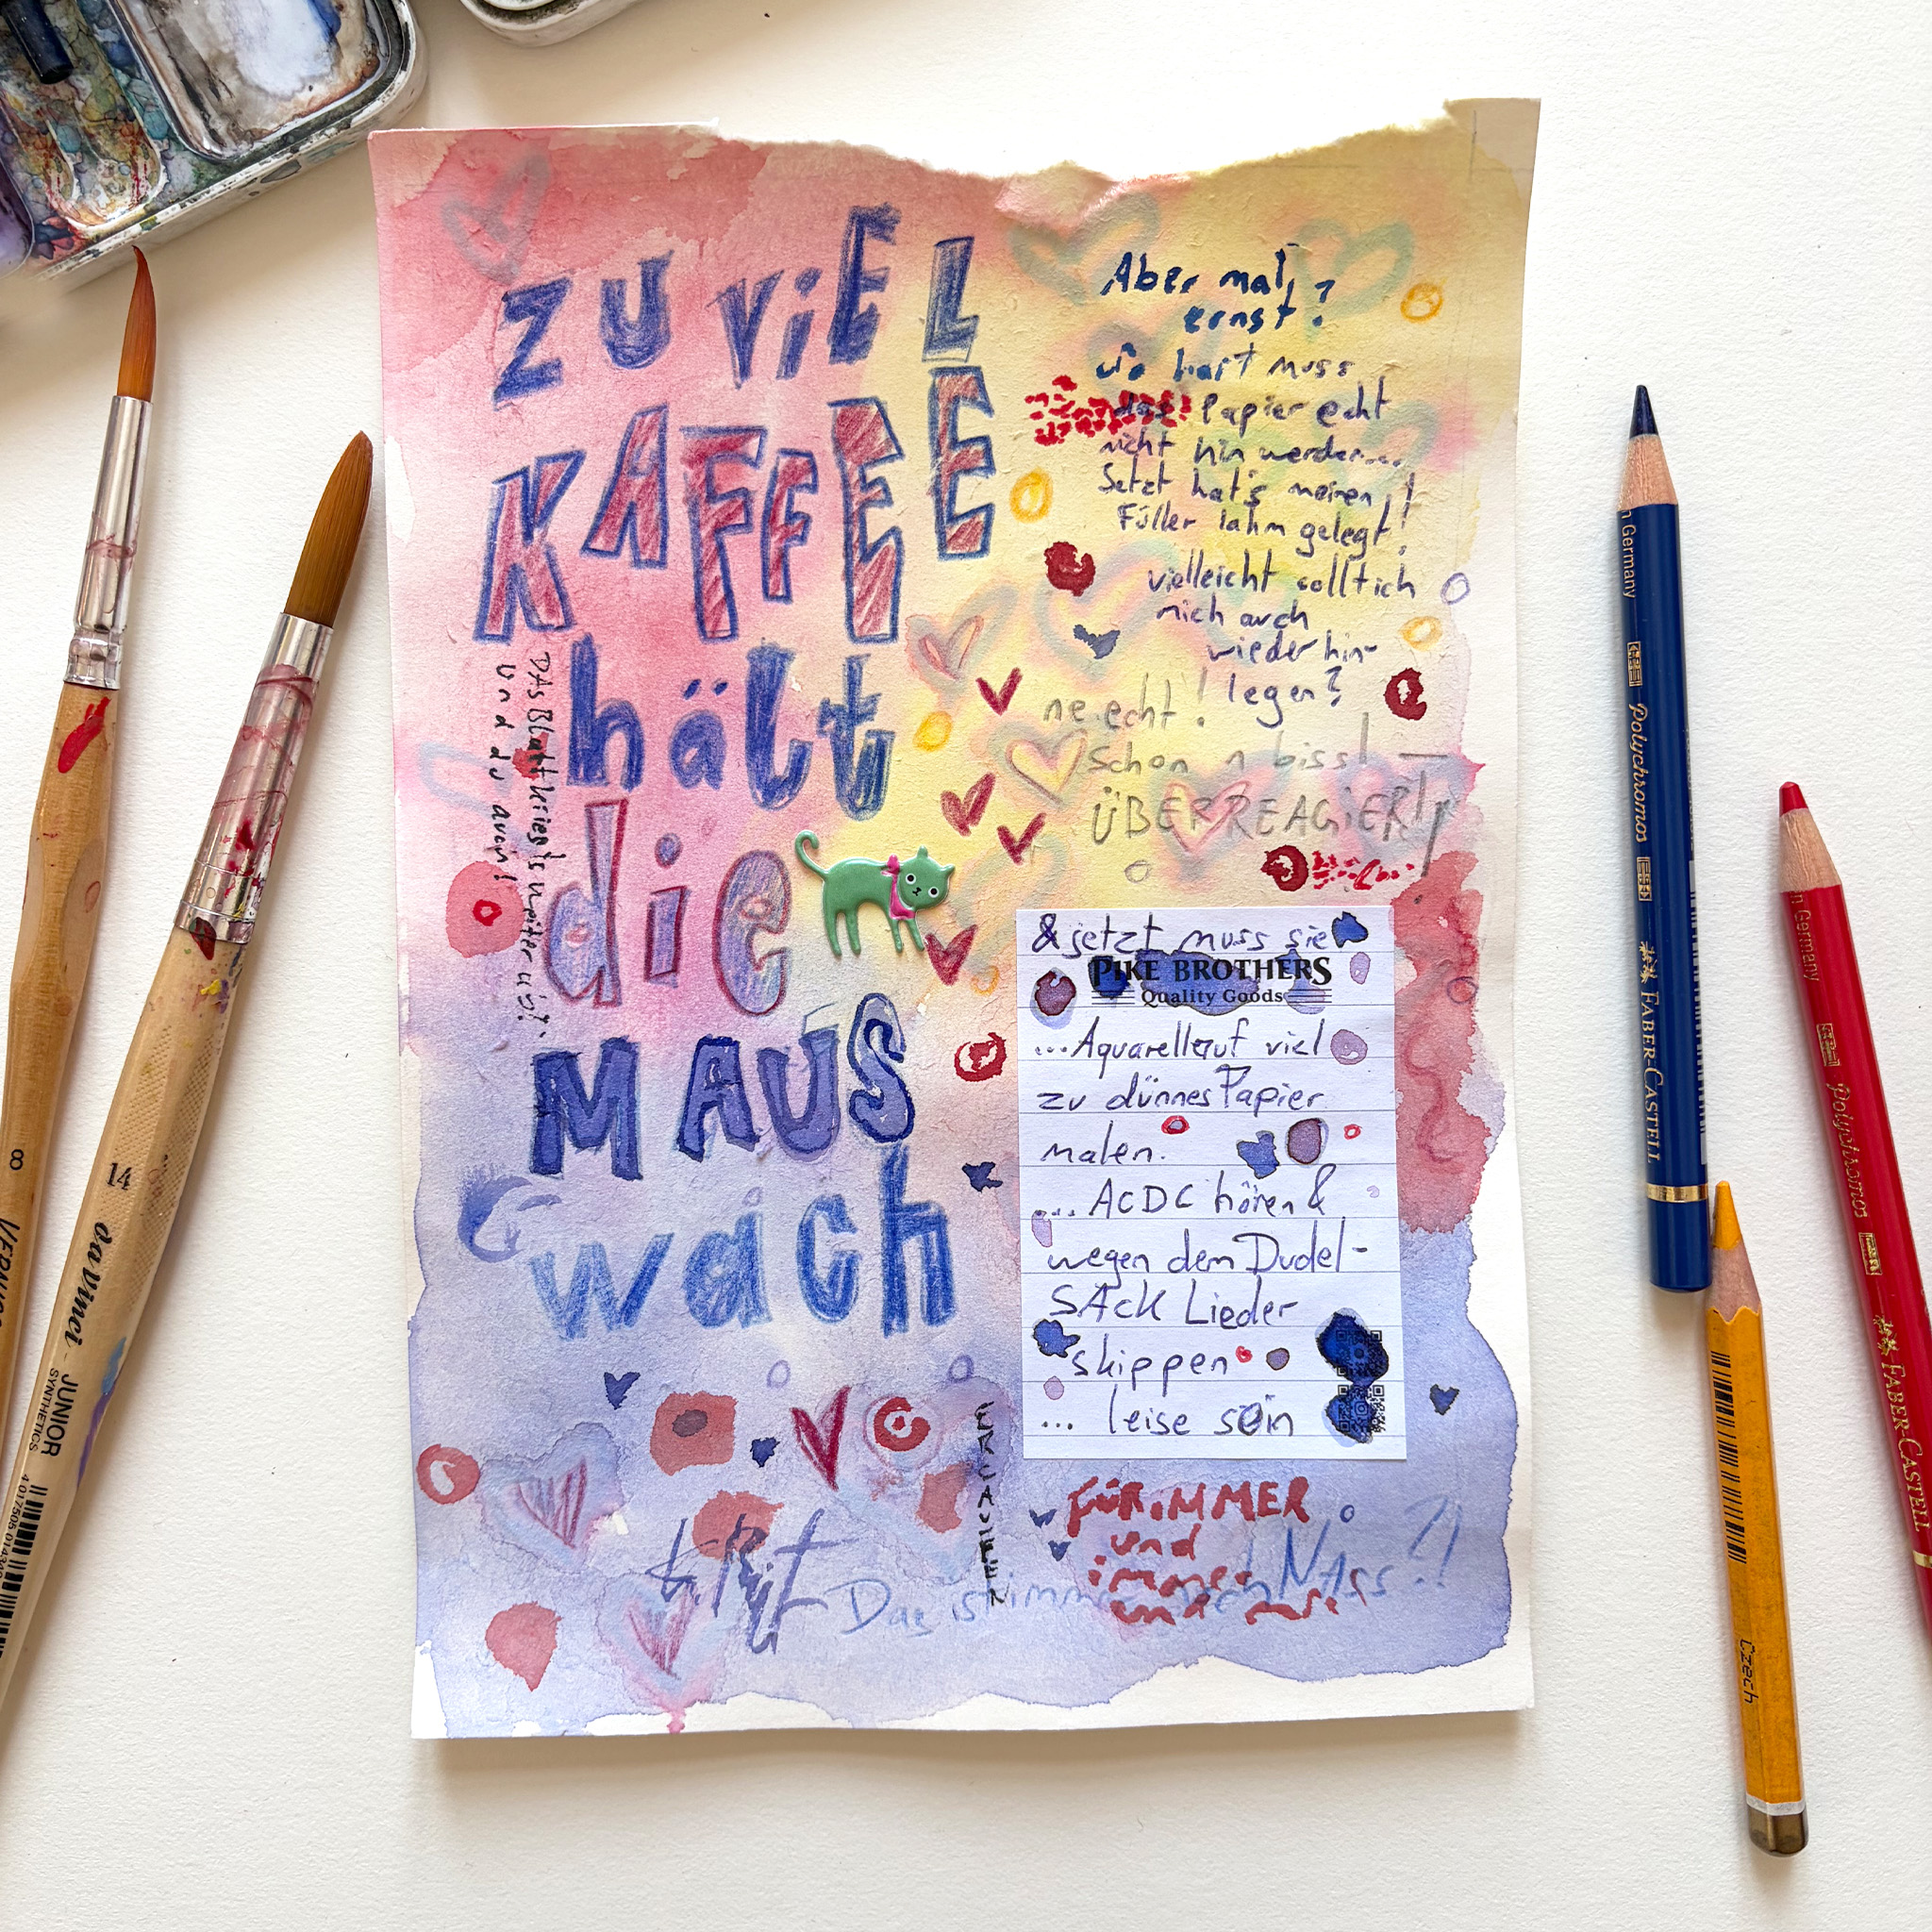 zu viel
KAFFEE
hält
die
MAUS
wach
Aber mal
ernst?
hart muss
das Papier echt
nicht hin werden...
Jetzt hat's meinen
Füller lahm gelegt!
vielleicht sollt ich
mich auch
wieder hin-
legen?
ne echt!
Schon n bissl
ÜBERREAGIERT
DAs Blatt kriegts weiter
Und du auch!
& jetzt muss sie
PIKE BROTHERS
Quality Goods
...Aquarell auf viel
zu dünnes Papier
malen.
... ACDC hören &
wegen dem Dudel-
SAck Lieder
skippen
... leise sein
FÜR iMMER
und
immer
Das ist immer noch NAss?!
8
14
da vinci
JUNIOR
SYNTHETICS
Germany
Polychromos
FABER-CASTELL
Germany
Polychromos
FABER-CASTELL
Czech